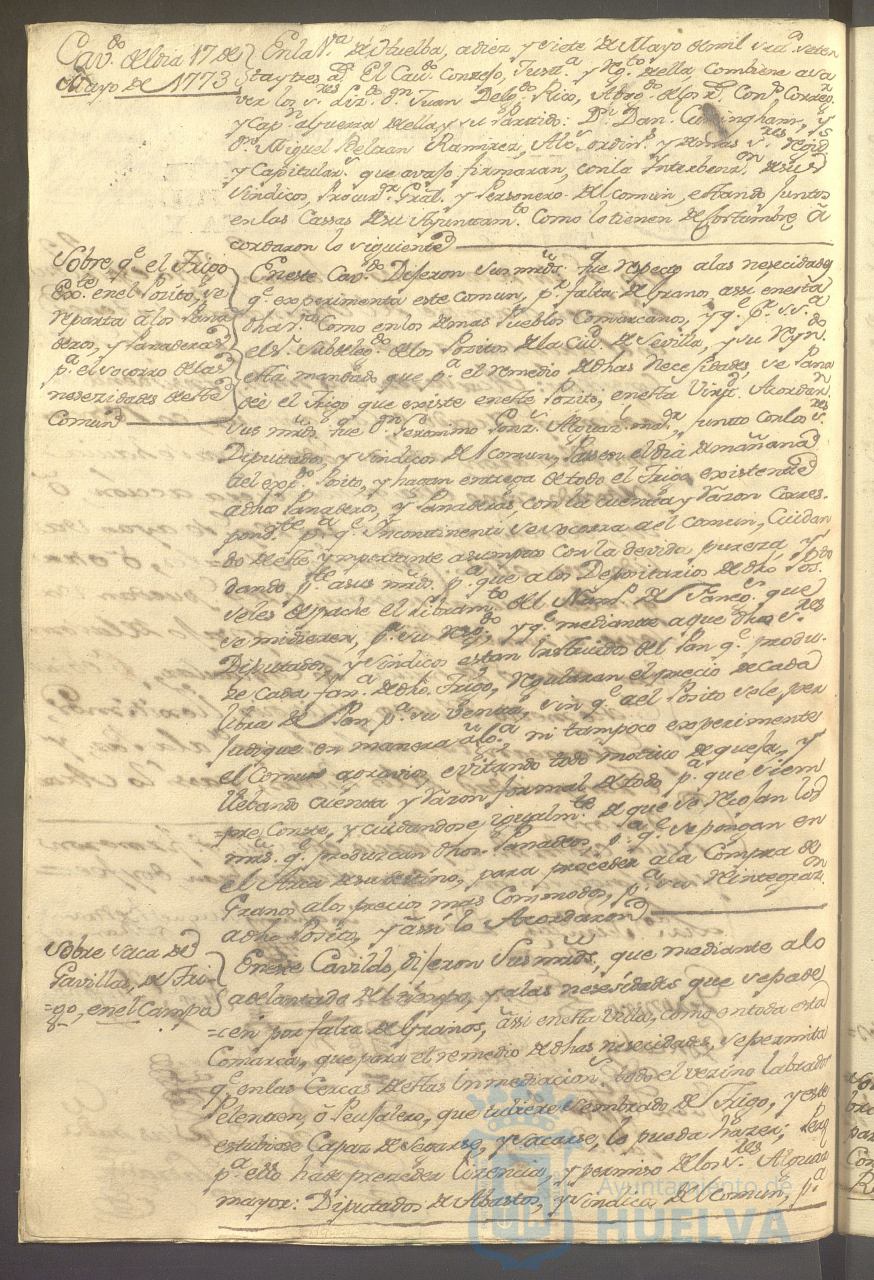 Cav.do del dia 17 de
Mayo de 1773
En la V.a de Huelba, a diez y siete de Mayo de mil sete.s seten
ta y tres a.s El Cav.do Conzejo, Just.a y Rg.to della, combiene a sa
ver los s.res Liz.do D.n Juan Delg.do Rico, Abog.do de los R.s Con.s Correg.or
y Cap.n a Guerra de ella y su Partido: D.n Dan.l Coningham, y
D.n Miguel Beltran Ramirez, Alc.s ordin.s y demas s.res Regid.s
y Capitular.s que avajo firmarán, con la Interbenz.on de sus
Sindicos, Procur.dr Gral. y Personero del comun, estando juntos
en las Cassas de su Ayuntam.to Como lo tienen de costumbre, a
cordaron lo siguiente
Sobre q.e el Trigo
Ex.te en el Posito, se
reparta a los Pana
deros, y Panaderas
p.a el socorro de las
nesezidades de este
Comun
En este Cav.do Dijeron sus mrds. que respecto a las nesecidades
q.e experimenta este comun, p.r falta de Granos assi en esta
dha V.a Como en los demas Pueblos Comarcanos, y q.e p.r S.S.a
el S.r Subdeleg.do de los Positos de la Ciu.d de Sevilla, y su Reyn.do
esta mandado que p.a el remedio de dhas Necesidades, se Pana
deé el Trigo que existe en este Posito, en esta Virt.d Acordar.n
sus mrds. que D.n Geronimo Ponz.e Alguaz.l ma.r junto con los s.res
Diputados, y sindicos del comun, Passen el dia de mañana
al exp.do Posito, y hagan entrega de todo el Trigo existente
a dhos Panaderos, y Panaderas con la cuenta y Razon Corres-
pond.te p.a q.e Incontinenti se socorra a el comun, Cuidan
do de este ymportante asumpto con la devida pureza, y
dando p.te a sus mrds. p.a que a los Depositarios de dho Pos.to
se les despache el Libram.to del Num.o de Faneg.s que
se midieren, p.a su resg.do y q.e mediante a que dhos s.res
Diputados, y sindicos estan Instruidos del Pan q.e produ-
ze cada fan.a de dho Trigo, regularan el precio de cada
libra de Pan p.a su venta, sin q.e a el Posito se le per
judique en manera alg.a ni tampoco experimente
el Comun agravios, evitando todo motivo de quejas, y
llebando cuenta y Razon formal de todo, p.a que siem
=pre Conste, y cuidandose igualm.te de que se recojan los
mrs. q.e produzcan dhos. Panadeos, p.a q.e se pongan en
el Arca de su destino, para proceder a la Compra de
Granos a los precios mas Commodos, p.a su Reintegraz.on
a dho Posito, y assi lo Acordaron
Sobre saca de
Gavillas, de Tri-
=go, en el Campo
En este Cavildo, dijeron Sus mrds, que mediante a lo
adelantado del tiempo, y a las nesesidades que se pade
=cen por falta de Granos, assi en esta Villa, como en toda esta
Comarca, que para el remedio de dhas nesecidades, se permita
q.e en las Cercas de estas Inmediacion.s todo el vezino labrador
Pelentrin, ó Peujalero, que tubiere sembrado de Trigo, y este
estubiese Capaz de Segarse, y sacarse, lo pueda hazer; Pero
p.a ello ha de preceder Lizencia, y permiso de los S.res Alguaz.l
mayor: Diputados de Abastos, y sindicos del Comun, p.a
Ayuntamiento de
HUELVA